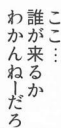 ここ…
誰が来るか
わかんねーだろ